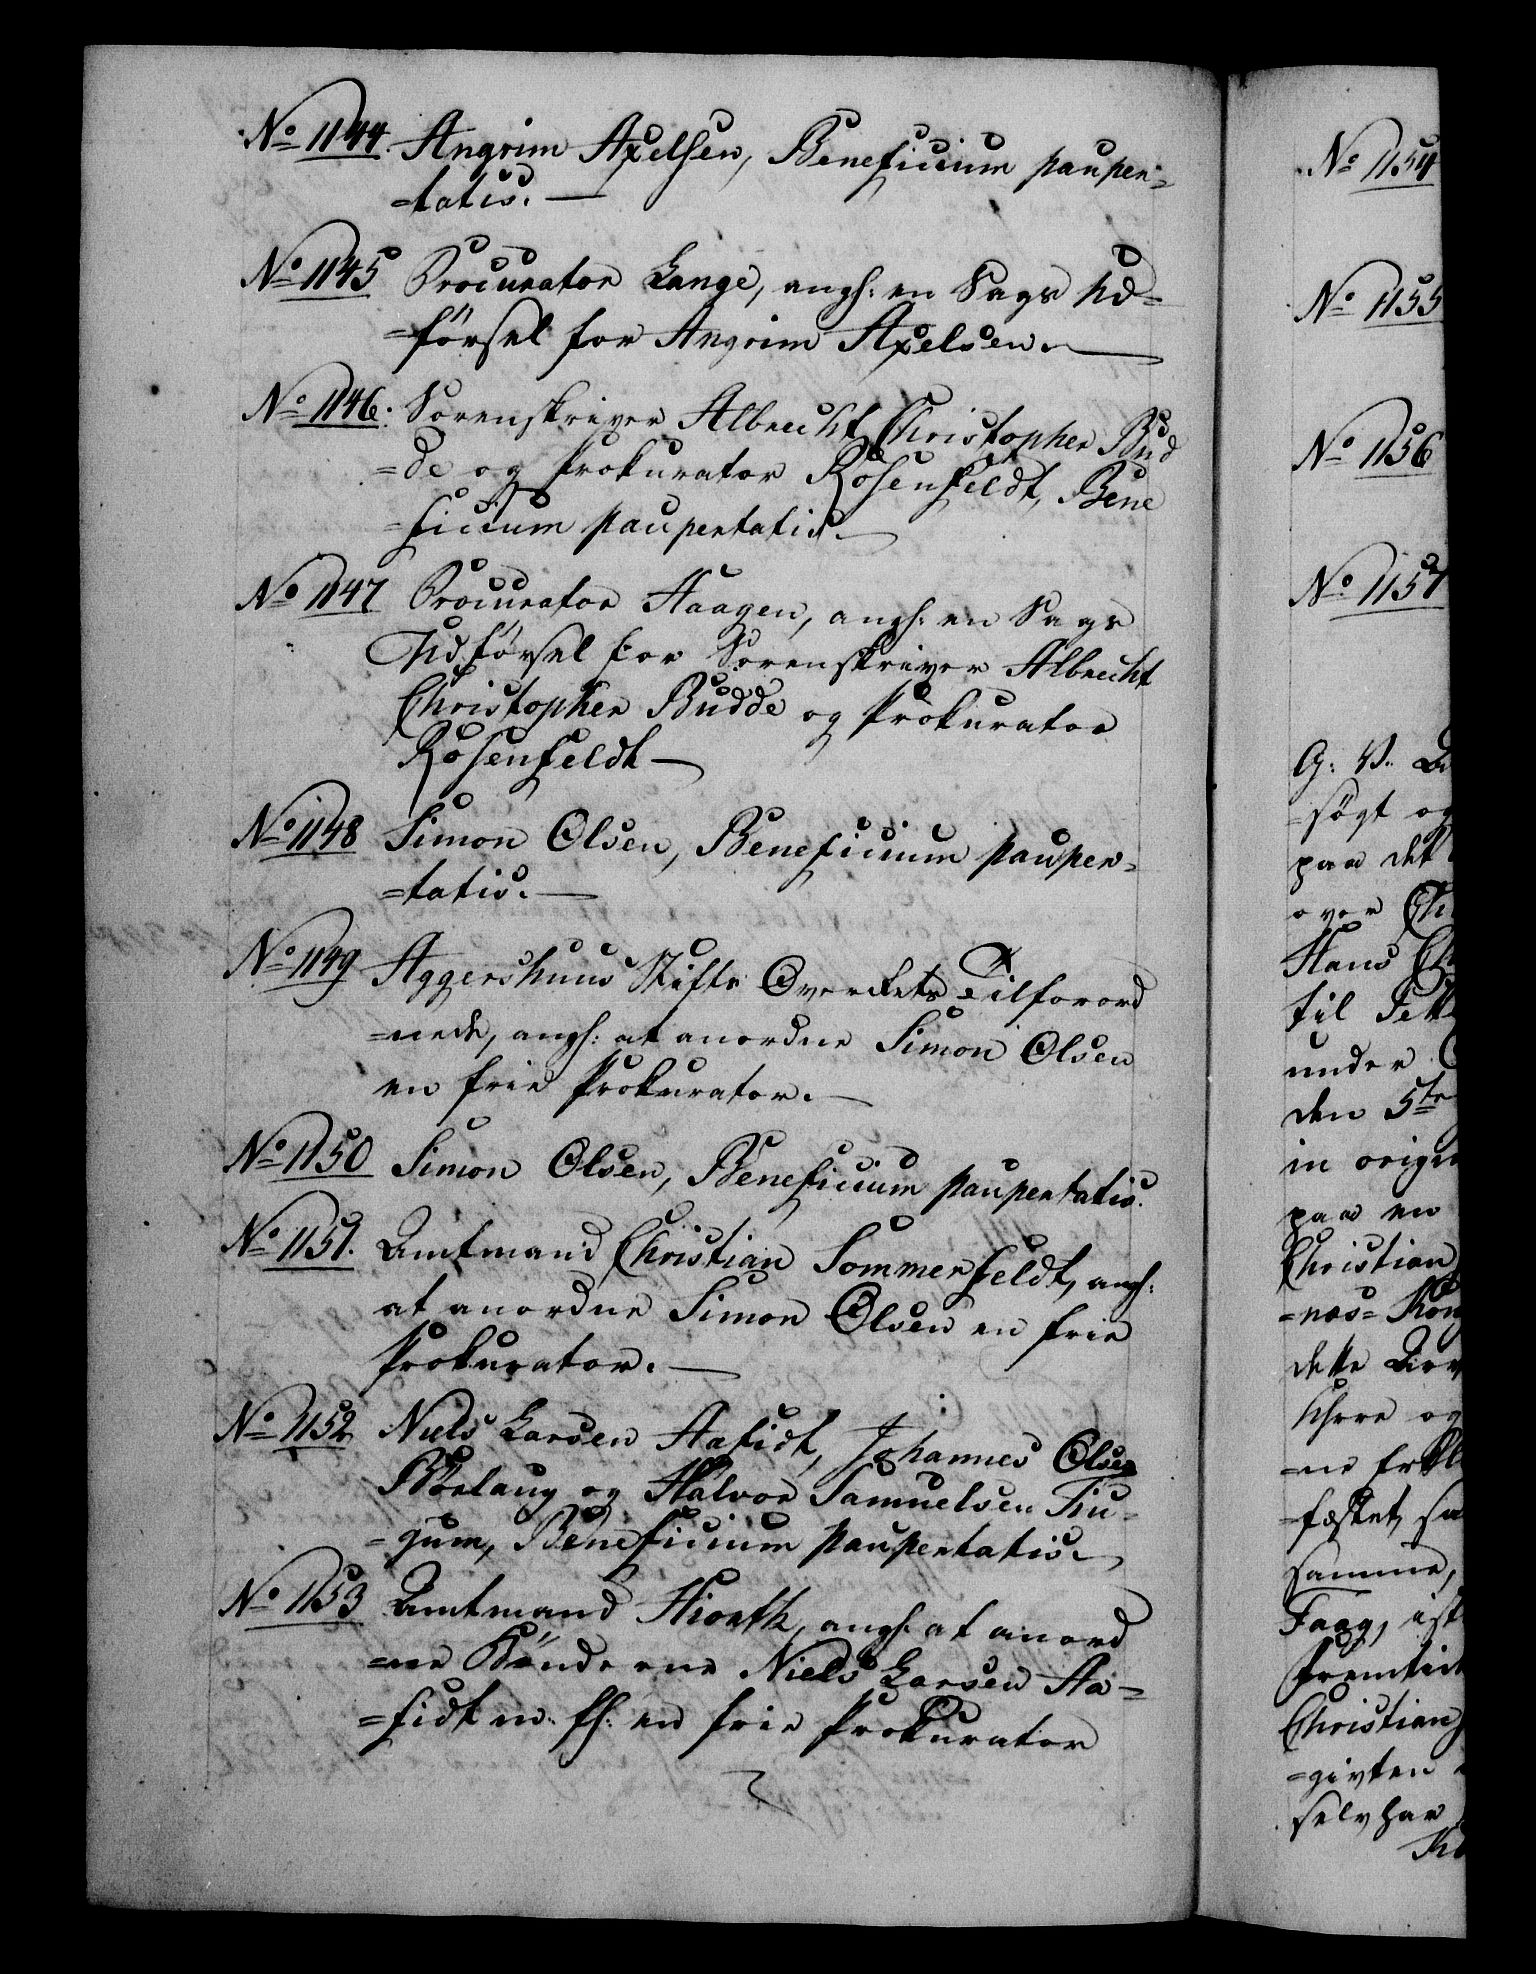 No 1144. Angrim Axelsen, Beneficium pauper=
=tatis. —
No 1145 Procurator Lange, angh: en Sags Ud=
=försel for Angrim Axelsen. —
No 1146. Sorenskriver Albrecht Christopher Bud
=de og Prokurator Rosenfeldt, Bene
=ficium paupertatis —
No 1147 Procurator Haagen, angh: en Sags
Udförsel for Sorenskriver Albrecht
Christopher Budde og Prokurator
Rosenfeldt —
No 1148 Simon Olsen, Beneficium pauper=
=tatis. —
No 1149 Aggershuus Stifts Overrets Tilforord
=nede, angh: at anordne Simon Olsen
en frie Prokurator. —
No 1150 Simon Olsen, Beneficium paupertatis.
No 1151. Amtmand Christian Sommerfeldt, angh:
at anordne Simon Olsen en frie
Prokurator. —
No 1152 Niels Larsen Aafidt, Johannes Olsen
Börlaug og Halvor Samuelsen Tiu=
=gum, Beneficium paupertatis. —
No 1153 Amtmand Hiorth, angh: at anord
=ne Bönderne Niels Larsen Aa=
=fidt m: fh: en frie Prokurator
No 1154
No 1155
No 1156
No 1157
G: V.
=søgt og
paa det
over
Hans
til
under
den 5te
in origin
paa en
Christian
=næs=
dette
Uhrre og
=ne
=fæstet,
samme,
Faag,
fremtid
Christian
=givten
selv har